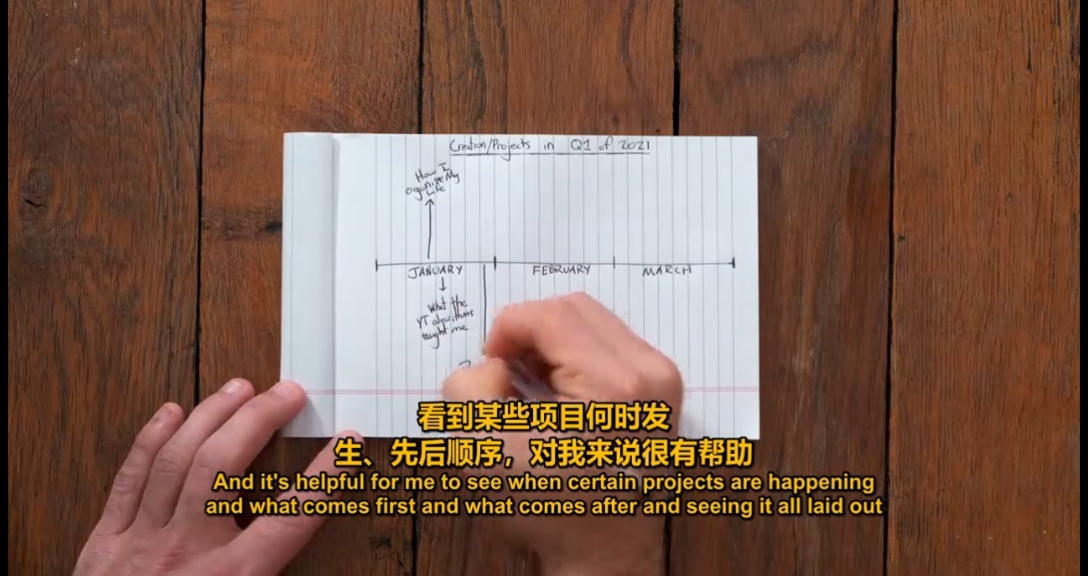 Creation/Projects in Q1 of 2021
How I
organise My
Life
JANUARY
FEBRUARY
MARCH
What the
YT algorithms
taught me
看到某些项目何时发
生、先后顺序，对我来说很有帮助
And it's helpful for me to see when certain projects are happening
and what comes first and what comes after and seeing it all laid out